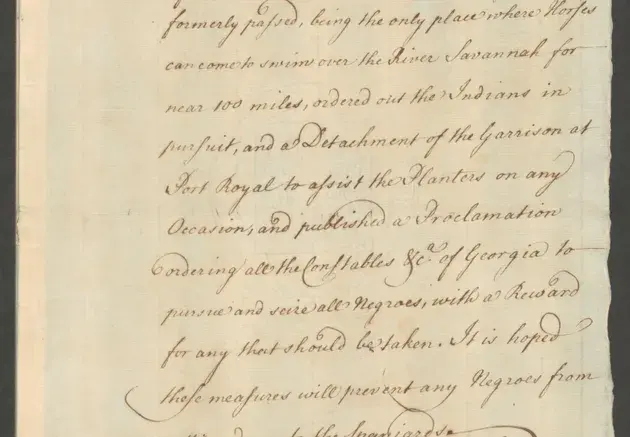 formerly passed, being the only place where Horses
can come to swim over the River Savannah for
near 100 miles, ordered out the Indians in
pursuit, and a Detachment of the Garrison at
Port Royal to assist the Planters on any
Occasion, and published a Proclamation
ordering all the Constables &c.a of Georgia to
pursue and seize all Negroes, with a Reward
for any that should be taken. It is hoped
these measures will prevent any Negroes from
to the Spaniards.